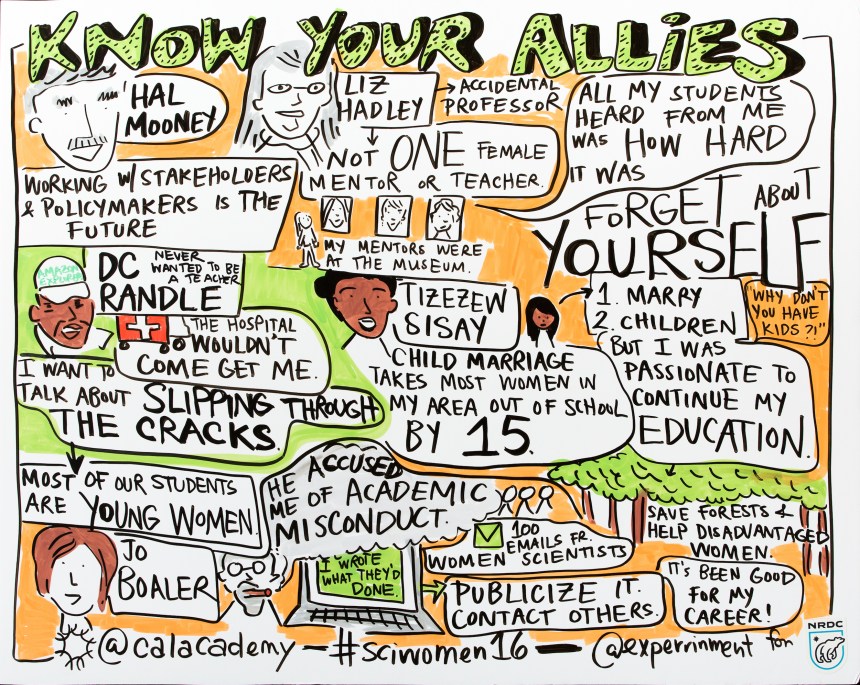 KNOW YOUR ALLIES
HAL
MOONEY
WORKING W/STAKEHOLDERS
& POLICYMAKERS IS THE
FUTURE
LIZ
HADLEY
ACCIDENTAL
PROFESSOR
NOT ONE FEMALE
MENTOR OR TEACHER.
MY MENTORS WERE
AT THE MUSEUM.
ALL MY STUDENTS
HEARD FROM ME
WAS HOW HARD
IT WAS
FORGET ABOUT
YOURSELF
AMAZON
EXPLORER
DC
RANDLE
NEVER
WANTED TO BE
A TEACHER
THE HOSPITAL
WOULDN'T
COME GET ME.
I WANT TO
TALK ABOUT SLIPPING THROUGH
THE CRACKS.
MOST OF OUR STUDENTS
ARE YOUNG WOMEN
TIZEZEW
SISAY
CHILD MARRIAGE
TAKES MOST WOMEN IN
MY AREA OUT OF SCHOOL
BY 15.
1. MARRY
2. CHILDREN
"WHY DON'T
YOU HAVE
KIDS?!"
BUT I WAS
PASSIONATE TO
CONTINUE MY
EDUCATION.
SAVE FORESTS &
HELP DISADVANTAGED
WOMEN.
IT'S BEEN GOOD
FOR MY
CAREER!
JO
BOALER
HE ACCUSED
ME OF ACADEMIC
MISCONDUCT.
I WROTE
WHAT THEY'D
DONE.
100
EMAILS FR.
WOMEN SCIENTISTS
PUBLICIZE IT.
CONTACT OTHERS.
@calacademy - #sciwomen16 - @experrinment for
NRDC